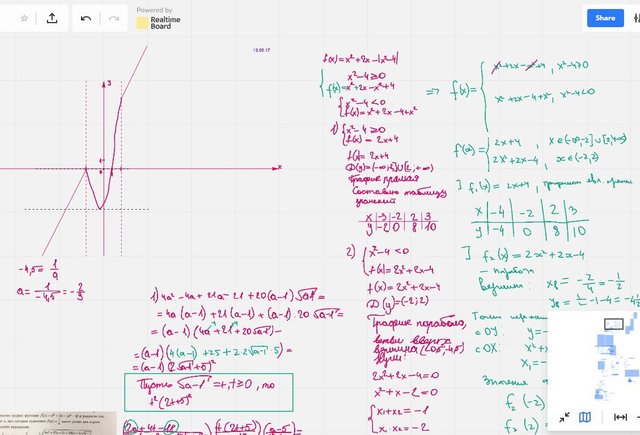 Powered by
Realtime
Board
Share
13.05.17
y
x
-4,5 = 1/a
a = 1/-4,5 = -2/9
f(x) = x²+2x-|x²-4|
x²-4≥0
f(x)=x²+2x-x²+4
x²-4<0
f(x)=x²+2x-4+x²
1) x²-4≥0
f(x)=2x+4
f(x)=2x+4
D(y)=(-∞;-2]∪[2;+∞)
График прямая
Составлю таблицу
значений
x -3 -2 2 3
y -2 0 8 10
2) x²-4<0
f(x)=2x²+2x-4
f(x)=2x²+2x-4
D(y)=(-2;2)
График парабола,
ветви вверх
вершина (-0,5;-4,5)
нули:
2x²+2x-4=0
x²+x-2=0
x₁+x₂=-1
x₁·x₂=-2
⇒ f(x)= x²+2x-x²+4, x²-4≥0
x²+2x-4+x², x²-4<0
f(x)= 2x+4, x∈(-∞;-2]∪[2;+∞)
2x²+2x-4, x∈(-2;2)
] f₁(x)=2x+4,
x -4 -2 2 3
y -4 0 8 10
] f₂(x)=2x²+2x-4
- парабола
вершина: x₀=-2/4=-1/2
y₀=1/2-1-4=-4½
Точки
cOY: y=
cOX: x²+x
x₁=
Значения
f₂(-2)
f₂(2)
1) 4a²-4a+21a-21+20(a-1)√a-1=
=4a(a-1)+21(a-1)+(a-1)·20√a-1=
=(a-1)(4a+21+20√a-1)=
=(a-1)(4(a-1)+25+2·2√a-1·5)=
=(a-1)(2√a-1+5)²
Пусть √a-1=t, t≥0, то
t²(2t+5)²